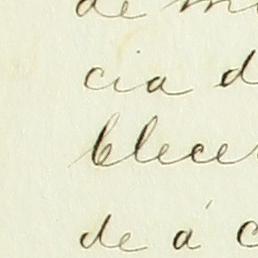 de
cia d
blece
de á c